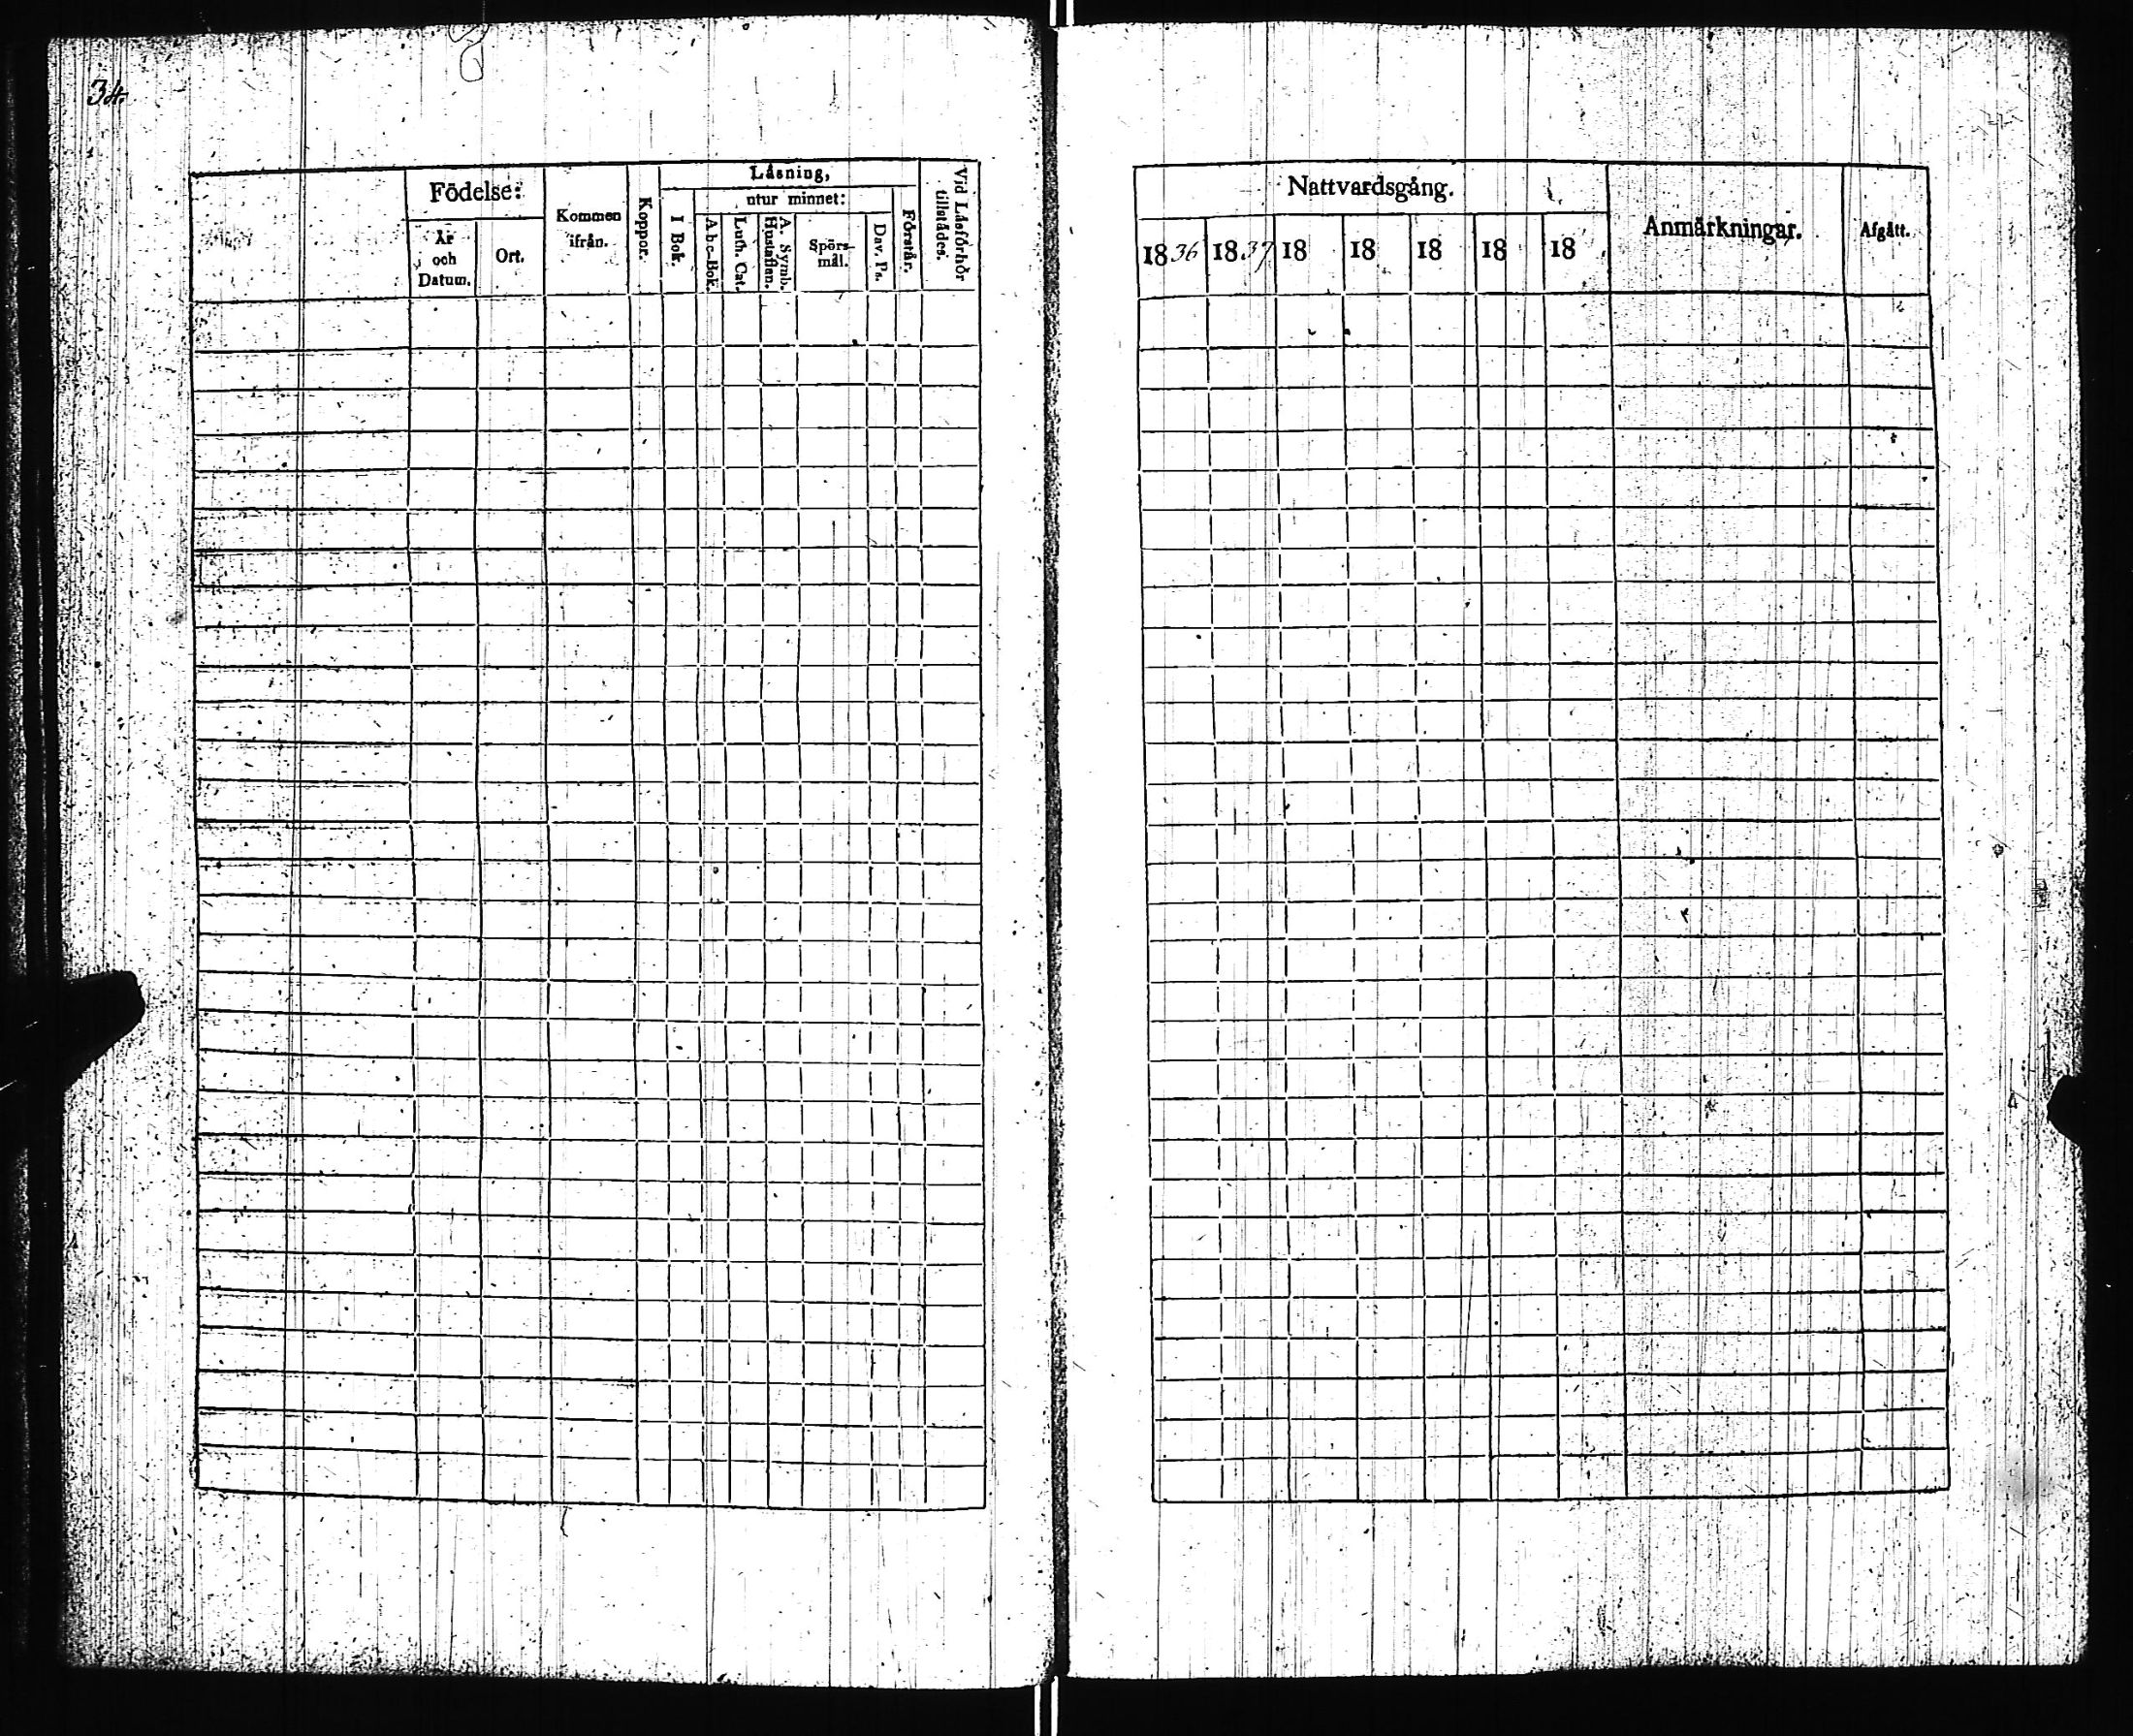 34.
Födelse:
År och Datum.
Ort.
Kommen ifrån.
Koppor.
Låsning,
I Bok.
utur minnet:
Abc-Bok.
Luth. Cat.
A. Symb. Hustaflan.
Spörs-mål.
Dav. Ps.
Förstår.
Vid Låsförhör tillstådes.
Nattvardsgång.
1836
1837
18
18
18
18
18
Anmärkningar.
Afgått.